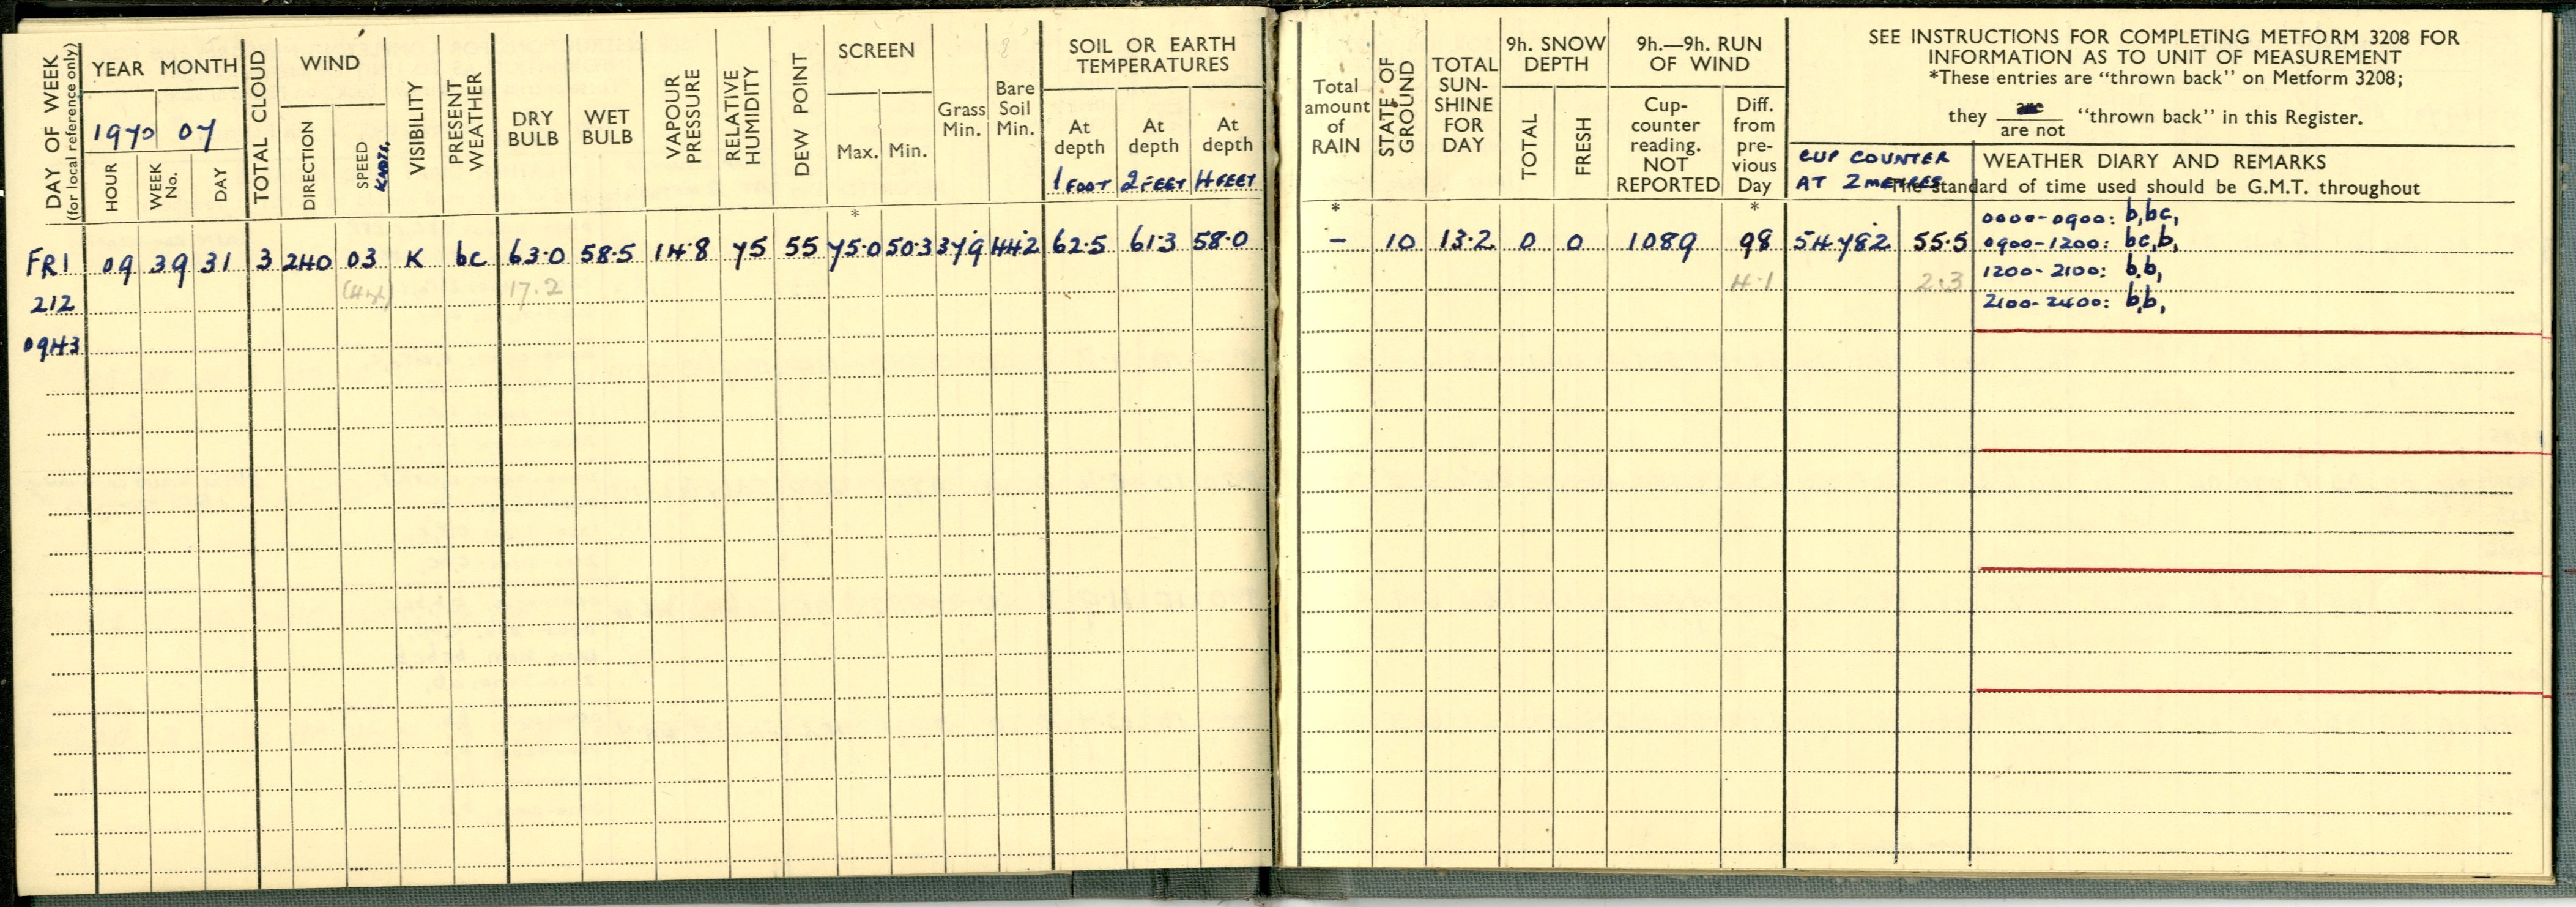 DAY OF WEEK
(for local reference only)
YEAR MONTH
1970 07
HOUR
WEEK No.
DAY
TOTAL CLOUD
WIND
DIRECTION
SPEED KNOTS.
VISIBILITY
PRESENT WEATHER
DRY BULB
WET BULB
VAPOUR PRESSURE
RELATIVE HUMIDITY
DEW POINT
SCREEN
Max. Min.
Grass Min.
Bare Soil Min.
SOIL OR EARTH TEMPERATURES
At depth At depth At depth
1 FOOT 2 FEET 4 FEET
*
FRI 09 39 31 3 240 03 K bc 63.0 58.5 14.8 75 55 75.0 50.3 37.9 44.2 62.5 61.3 58.0
17.2
212
0943
Total amount of RAIN
STATE OF GROUND
TOTAL SUN-SHINE FOR DAY
9h. SNOW DEPTH
TOTAL FRESH
9h.—9h. RUN OF WIND
Cup-counter reading. NOT REPORTED
Diff. from pre-vious Day
SEE INSTRUCTIONS FOR COMPLETING METFORM 3208 FOR
INFORMATION AS TO UNIT OF MEASUREMENT
*These entries are "thrown back" on Metform 3208;
they are
are not "thrown back" in this Register.
CUP COUNTER
AT 2 METRES
WEATHER DIARY AND REMARKS
The standard of time used should be G.M.T. throughout
* *
– 10 13.2 0 0 1089 98 54782 55.5
4.1 2.3
0000-0900: b,bc,
0900-1200: bc,b,
1200-2100: b,b,
2100-2400: b,b,